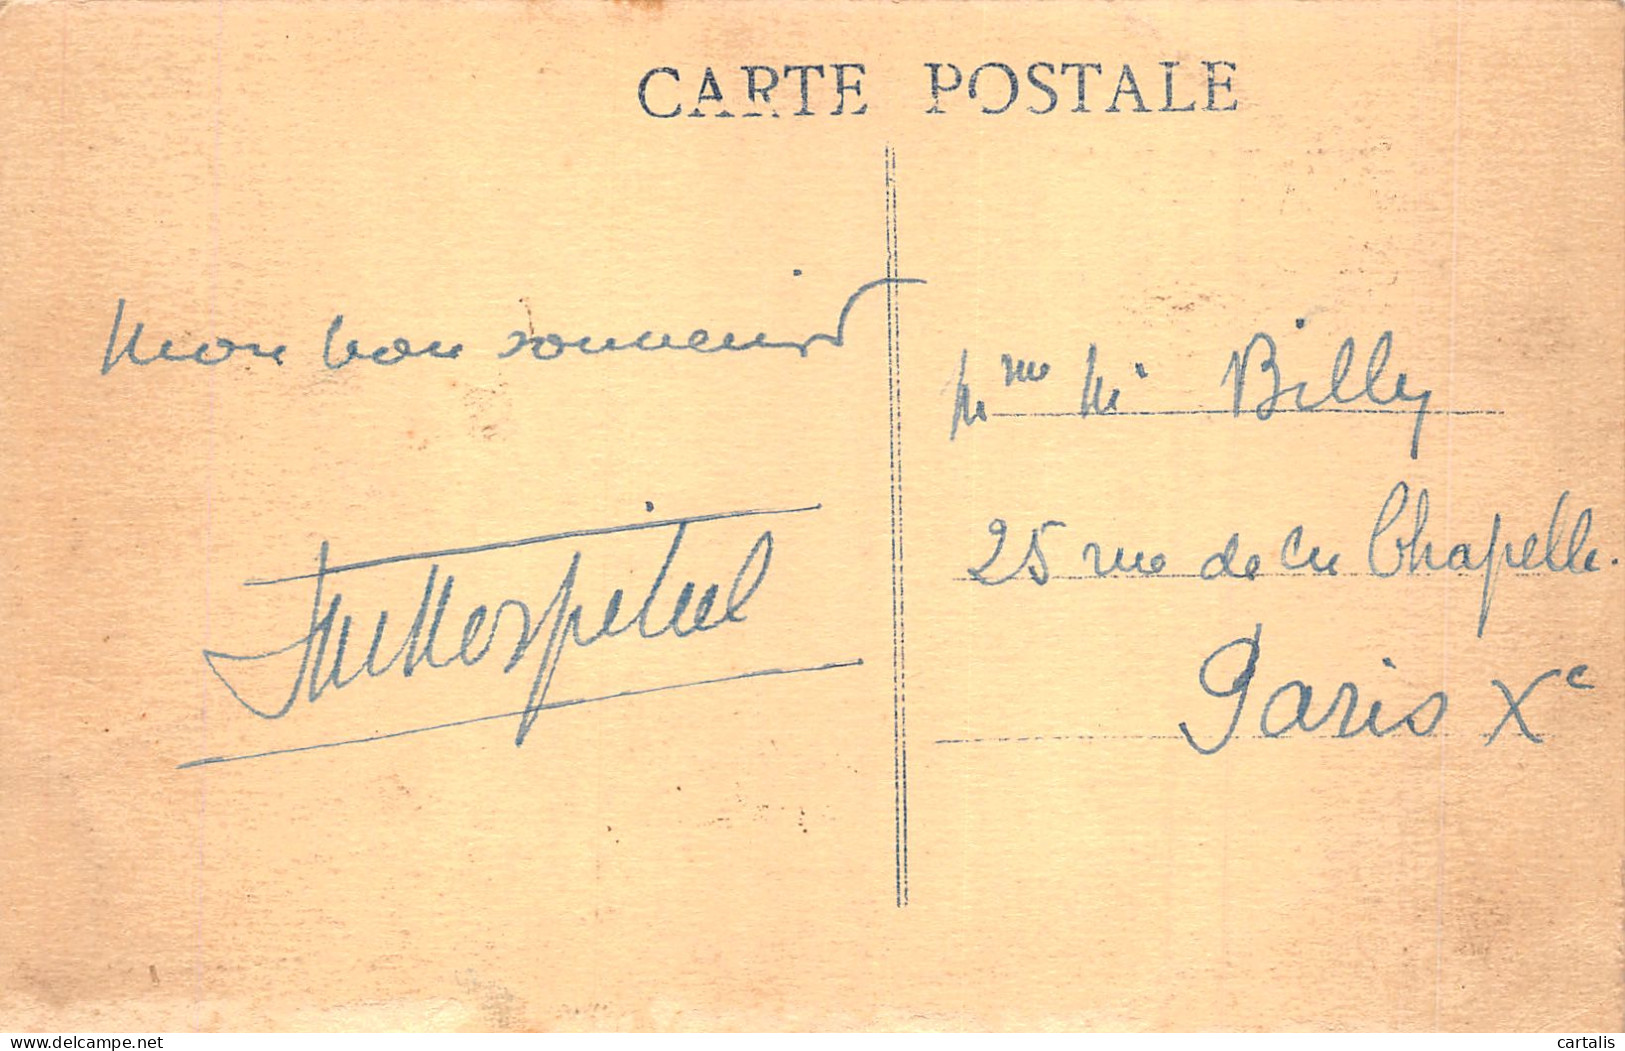 CARTE POSTALE
Mon bon souvenir
Mme Mi Billy
25 rue de la Chapelle.
Paris Xe
www.delcampe.net
cartalis